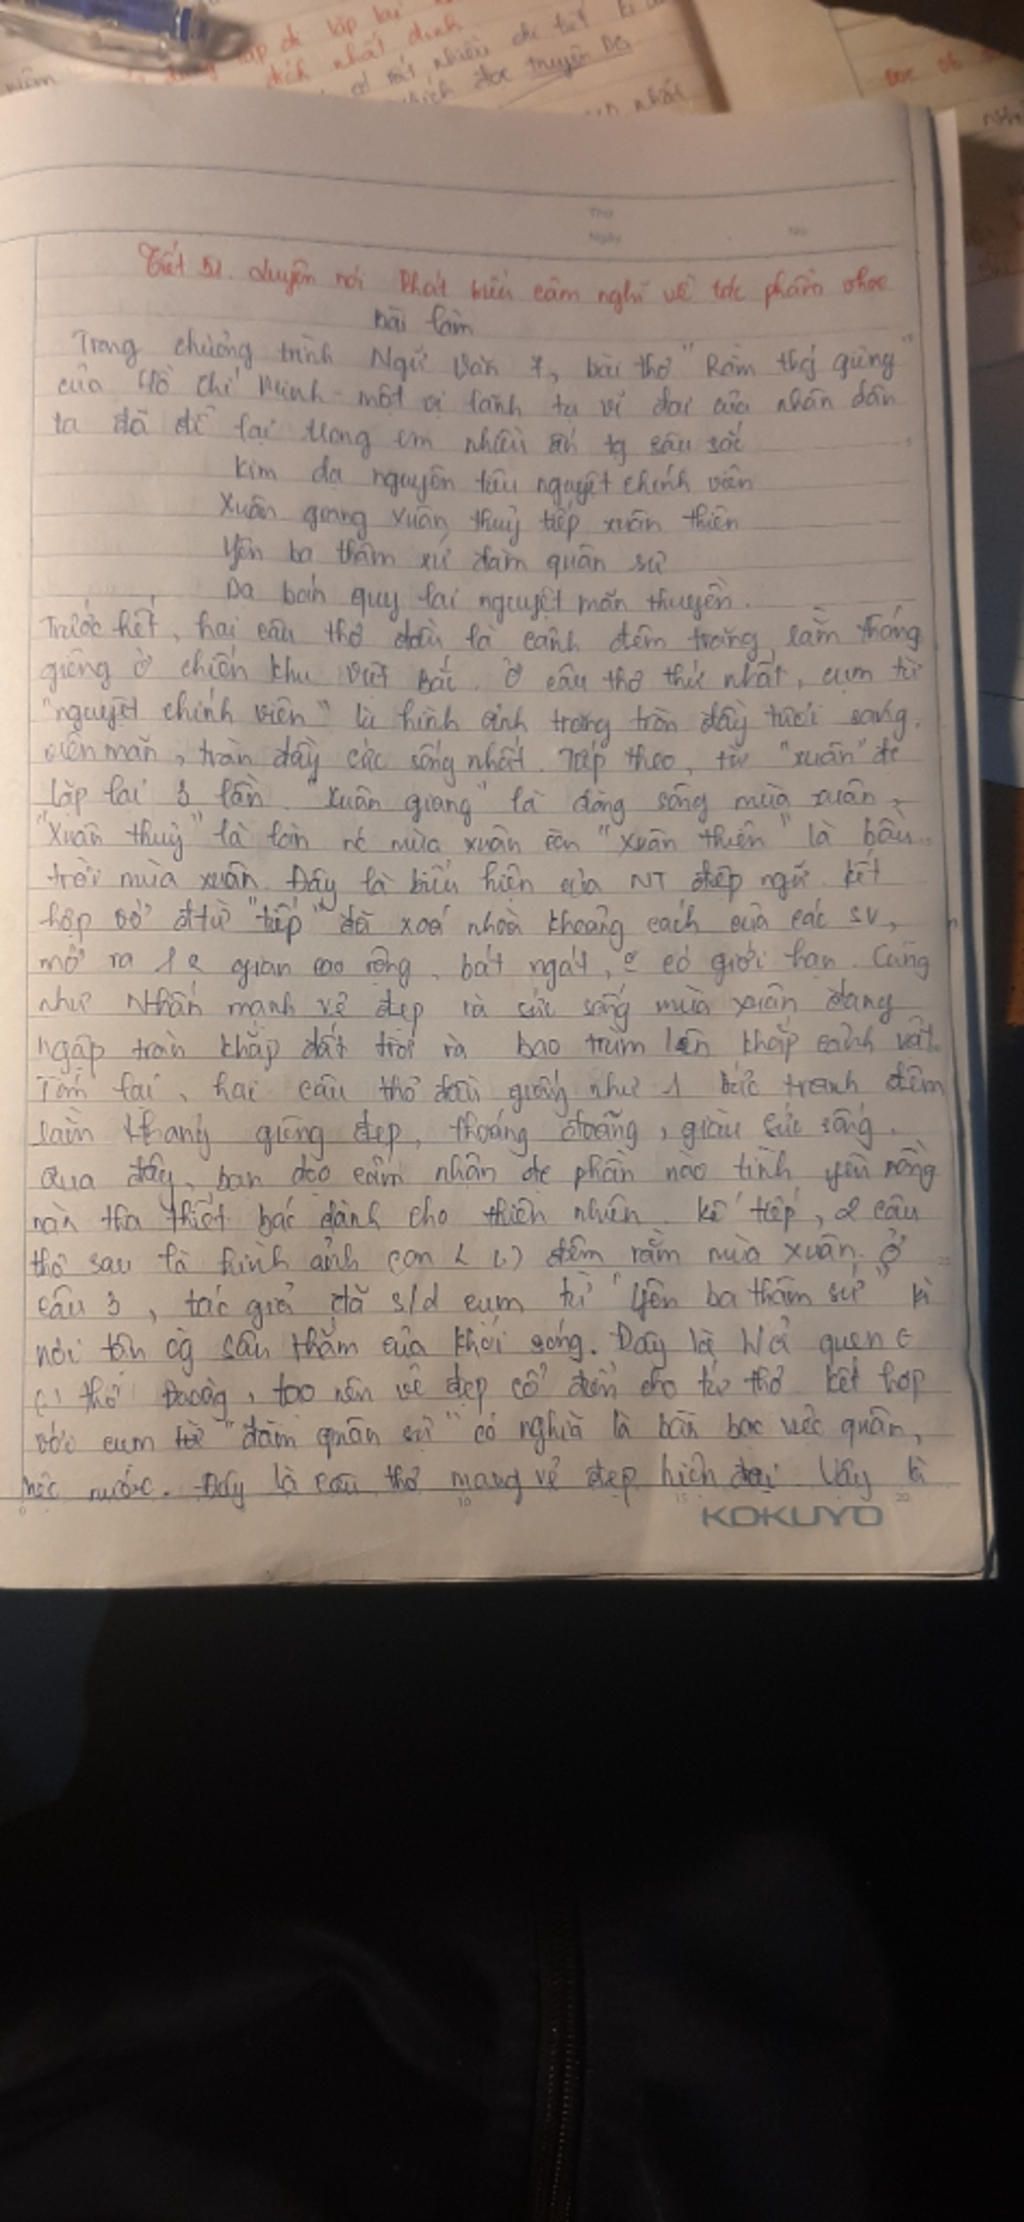 Tiết 51. Luyện nói Phát biểu cảm nghĩ về tác phẩm vhoc
Bài làm
Trong chương trình Ngữ Văn 7, bài thơ "Rằm thg giêng"
của Hồ Chí Minh - một vị lãnh tụ vĩ đại của nhân dân
ta đã để lại trong em nhiều ấn tg sâu sắc
Kim dạ nguyên tiêu nguyệt chính viên
Xuân giang xuân thuỷ tiếp xuân thiên
Yên ba thâm xứ đàm quân sự
Dạ bán quy lai nguyệt mãn thuyền.
Trước hết, hai câu thơ đầu là cảnh đêm trăng rằm tháng
giêng ở chiến khu Việt Bắc. Ở câu thơ thứ nhất, cụm từ
"nguyệt chính viên" là hình ảnh trăng tròn đầy tươi sáng,
viên mãn, tràn đầy sức sống nhất. Tiếp theo, từ "xuân" đc
lặp lại 3 lần. "Xuân giang" là dòng sông mùa xuân,
"Xuân thuỷ" là làn nc mùa xuân còn "xuân thiên" là bầu
trời mùa xuân. Đây là biểu hiện của NT điệp ngữ kết
hợp với đtừ "tiếp" đã xoá nhoà khoảng cách của các sv,
mở ra 1 gian cao rộng, bát ngát, có giới hạn. Cũng
như Nhấn mạnh vẻ đẹp và sức sống mùa xuân đang
ngập tràn khắp đất trời và bao trùm lên khắp cảnh vật.
Tóm lại, hai câu thơ đầu giống như 1 bức tranh đêm
rằm tháng giêng đẹp, thoáng đoãng, giàu sức sống.
Qua đây, bạn đọc cảm nhận đc phần nào tình yêu nồng
nàn tha thiết bác dành cho thiên nhiên. Kế tiếp, 2 câu
thơ sau là hình ảnh con đêm rằm mùa xuân. Ở
câu 3, tác giả đã s/d cụm từ "Yên ba thâm sứ"
nơi tận cg sâu thẳm của khói sóng. Đây là quen
thơ Đường, tạo nên vẻ đẹp cổ điển cho tứ thơ kết hợp
với cụm từ "đàm quân sự" có nghĩa là bàn bạc việc quân,
việc nước. Đây là câu thơ mang vẻ đẹp hiện đại. Vậy
KOKUYO